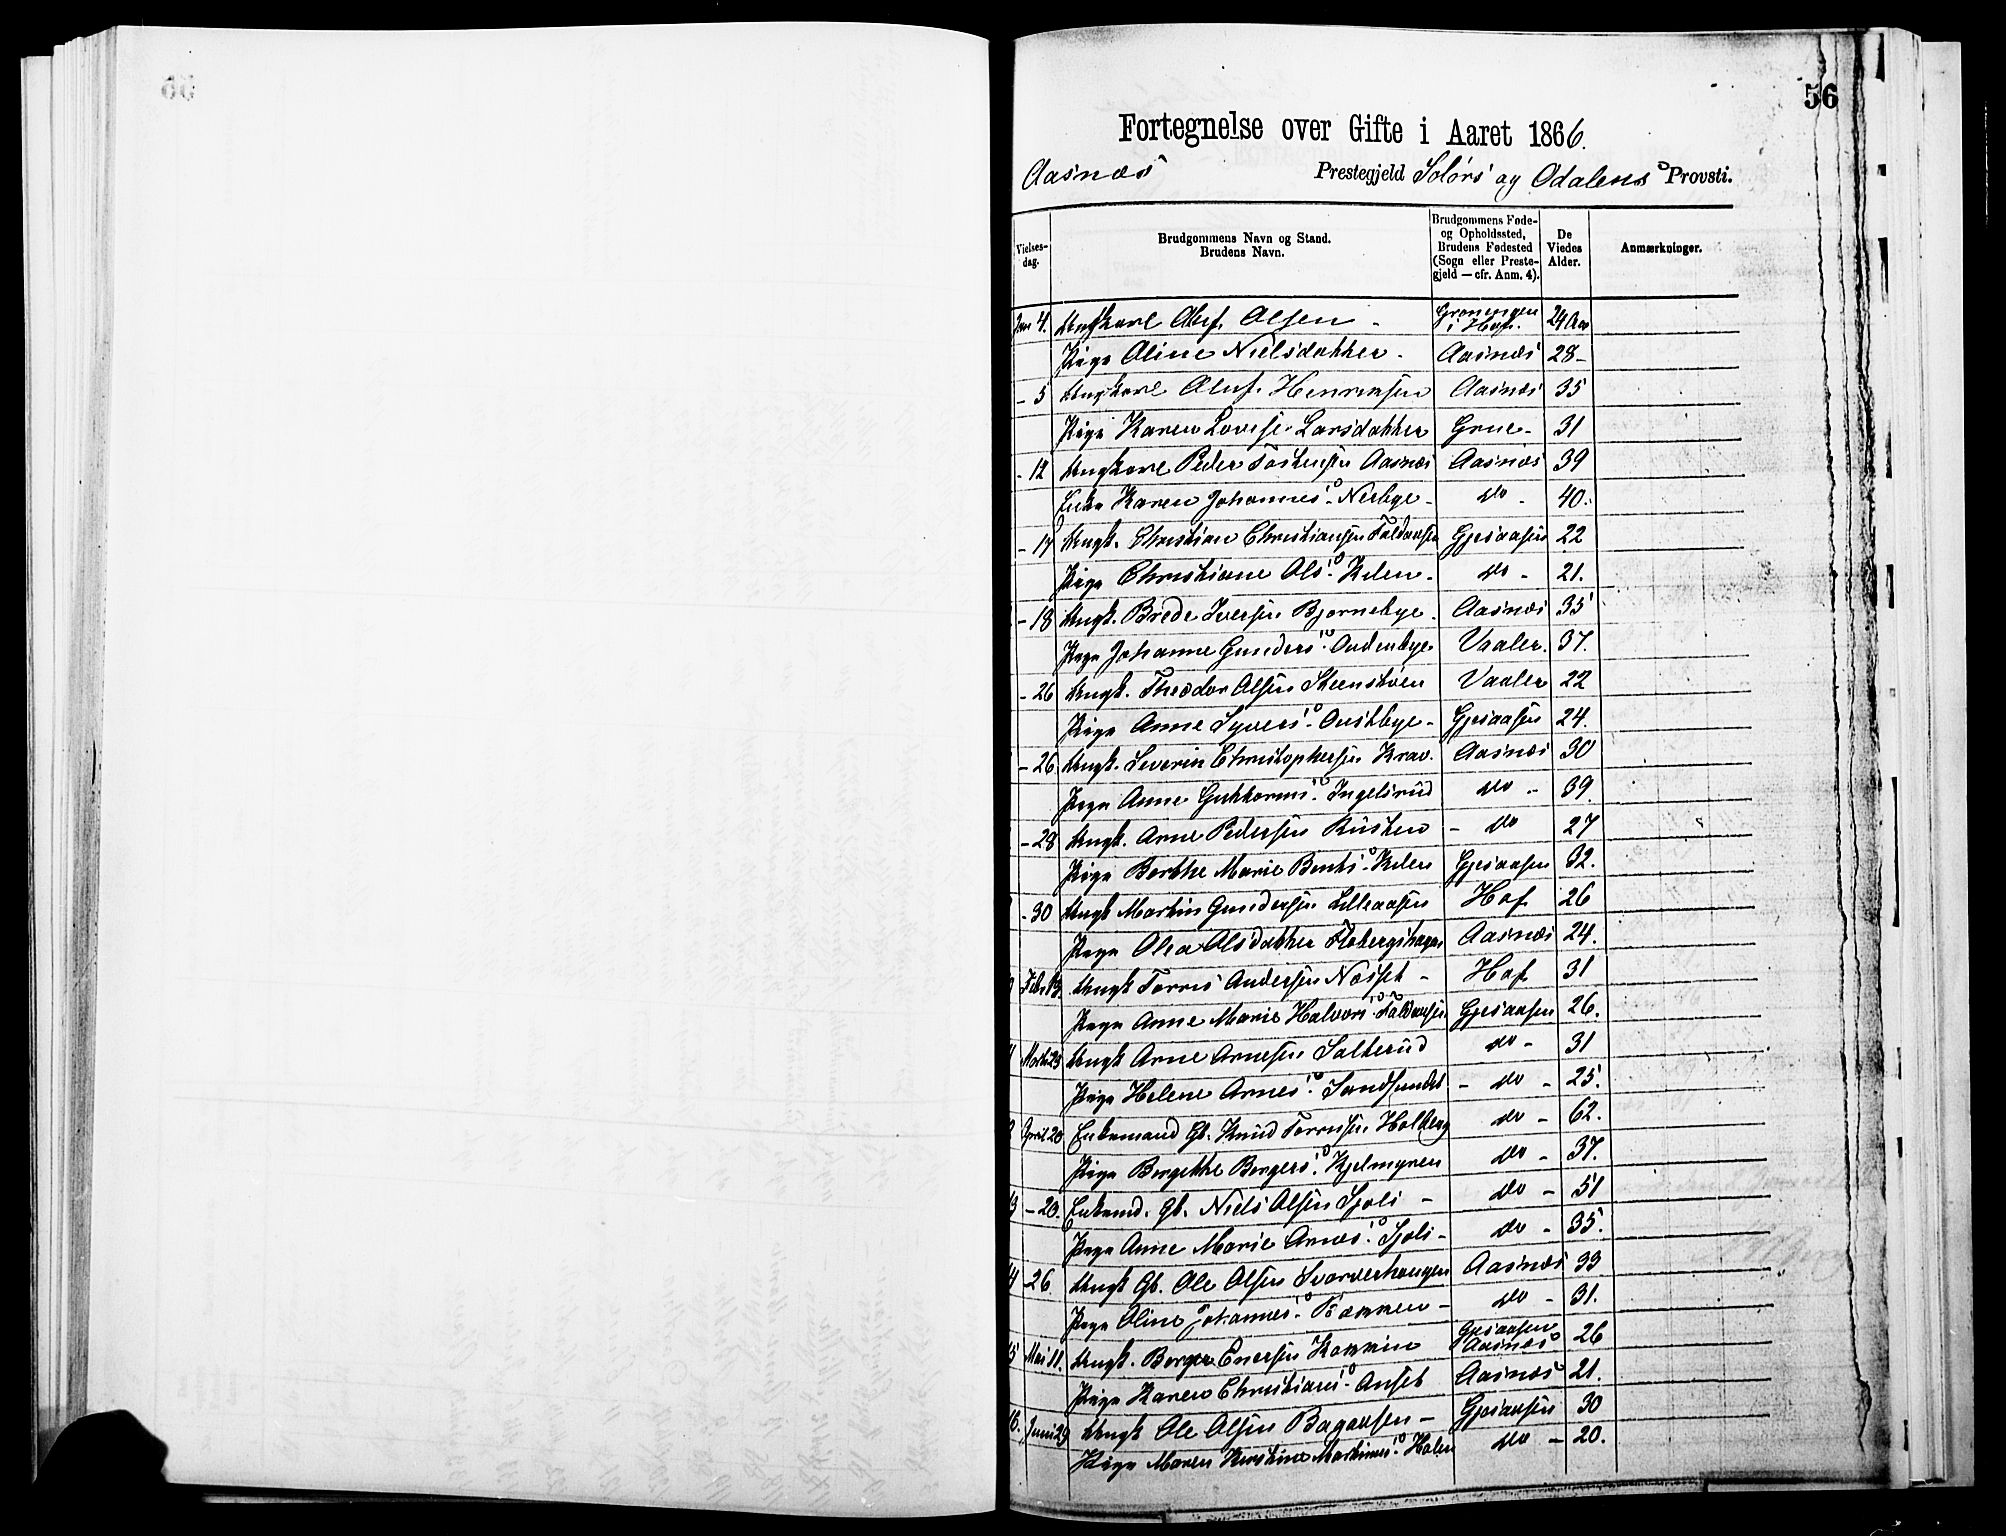 56
Fortegnelse over Gifte i Aaret 1866.
Aasnæs Prestegjeld Solørs og Odalens Provsti.
Vielses-
dag.
Brudgommens Navn og Stand.
Brudens Navn.
Brudgommens Føde-
og Opholdssted,
Brudens Fødested
(Sogn eller Preste-
gjeld — cfr. Anm. 4).
De
Viedes
Alder.
Anmærkninger.
Jan 4. Ungkarl Oluf Olsen - Grøningen i Hof. 24 Aar
Pige Oline Nielsdatter - Aasnæs 28 -
- 5 Ungkarl Oluf Henriksen Aasnæs 35
Pige Karen Lovise Larsdatter Grue - 31
- 12 Ungkarl Peder Tostensen Aasnæs Aasnæs 39
Enke Karen Johannesd. Nerbye - do - 40.
- 17 Ungk. Christian Christiansen Faldaasen Gjesaasen 22
Pige Christiane Olsd. Kilen - do - 21.
- 18 Ungk. Brede Iversen Bjørnebye. Aasnæs 35
Pige Johanne Gundersd. Audenbye Vaaler. 37.
- 26 Ungk. Theodor Olsen Steenstøen Vaaler 22
Pige Anne Syversd. Austbye - Gjesaasen 24.
- 26. Ungk. Severin Christophersen Krav. Aasnæs 30
Pige Anne Guttormsd. Ingelsrud do - 39.
- 28 Ungk. Arne Pedersen Rusten - do 27
Pige Berthe Marie Berntsd. Kilen Gjesaasen 32.
- 30 Ungk Martin Gundersen Lilleaasen Hof 26
Pige Olea Olsdatter Flobergshagen Aasnæs 24.
Febr 13. Ungk Torris Andersen Næsset - Hof 31
Pige Anne Marie Halvorsd. Faldaasen Gjesaasen 26.
Marts 23 Ungk Arne Arnesen Salterud do - 31
Pige Helene Arnesd. Sandsundet - do - 25.
April 20 Enkemand Gb. Knud Torrisen Holberg do - 62.
Pige Bergette Bergersd. Kjelmyren do - 37.
13 - 20. Enkemd. Gb. Niels Olsen Sjøli - do - 51
Pige Anne Marie Arnesd. Sjøli - do - 35.
14 26. Ungk Gb. Ole Olsen Svarverhaugen Aasnæs 33
Pige Oline Johannesd. - do - 31.
15 Mai 11. Ungk. Berger Enersen Gjesaasen Aasnæs 26
Pige Karen Christiansd. Anset Aasnæs 21.
16. Juni 29 Ungk Ole Olsen Bagaasen - Gjesaasen 30
Pige Maren Kirstine Martinusd. Holen do - 20.